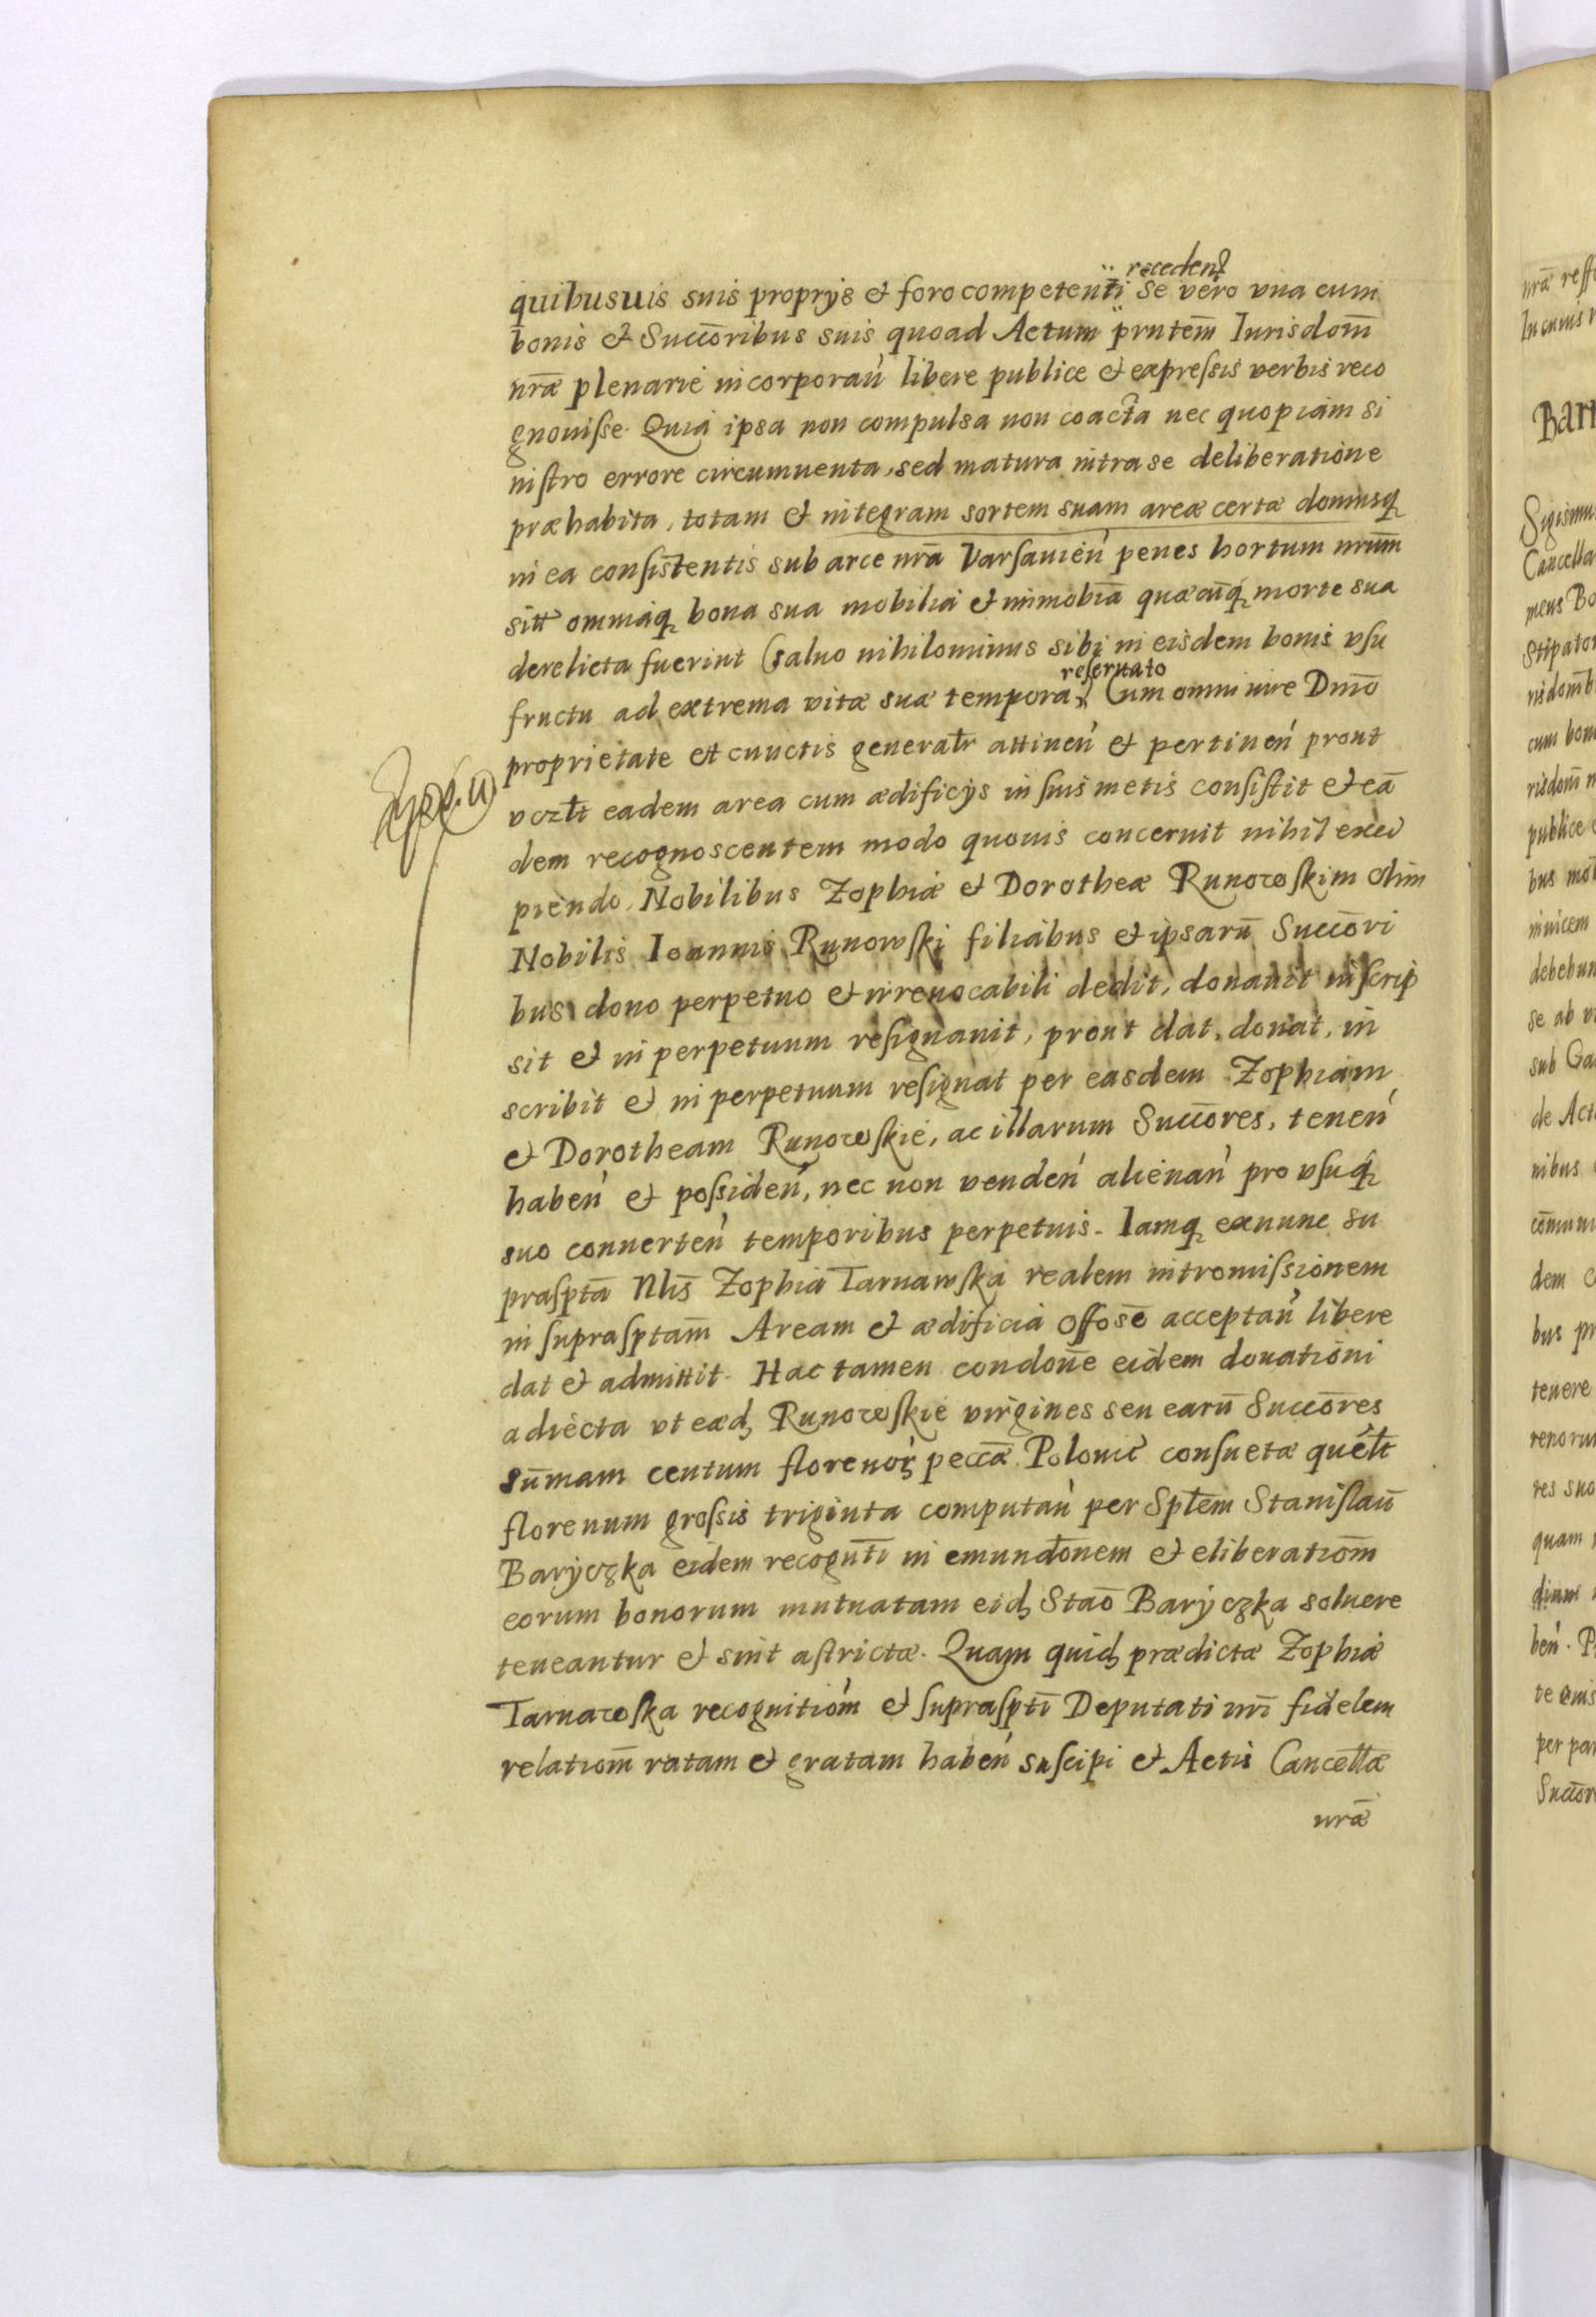 recedent
quibusuis suis proprijs et foro competenti se vero vna cum
bonis et Succ̄oribus suis quoad Actum pn̄tem̄ Iurisdom̄
nr̄æ plenarie incorporan̄ libere publice et expreſsis verbis reco
gnouiſse. Quia ipsa non compulsa non coacta nec quopiam si
niſtro errore circumuenta, sed matura intra se deliberatione
præhabita, totam et integram sortem suam areæ certæ domusq̨
in ea conſistentis sub arce nr̄a Varſauien̄ penes hortum nr̄um
sitt̄ omniaq̨ bona sua mobilia et immobīa quæcūq̨ morte sua
derelicta fuerint (saluo nihilominus sibi in eisdem bonis vſu
reſeruato
fructu ad extrema vitæ suæ tempora) Cum omni iure Dm̄o
proprietate et cunctis general̄r attinen̄ et pertinen̄ prout
vczlt̄ eadem area cum ædificijs in ſuis metis conſiſtit et eā
dem recognoscentem modo quouis concernit nihil exci
piendo. Nobilibus Zophiæ et Dorotheæ Runowſkim olim
Nobilis Ioannis Runowſki filiabus et ipsarū Succ̄ori
bus dono perpetuo et irreuocabili dedit, donauit inſcrip
sit et in perpetuum reſignauit, prout dat, donat, in
scribit et in perpetuum reſignat per easdem Zophiam
et Dorotheam Runowſkie, ac illarum Succ̄ores, tenen̄
haben̄ et poſsiden̄, nec non venden̄ alienan̄ pro vſuq̨
suo conuerten̄ temporibus perpetuis. Iamq̨ exnunc su
praſptā Nlis̄ Zophia Tarnawſka realem intromiſsionem
in ſupraſptam̄ Aream et ædificia Oſſosē acceptan̄ libere
dat et admittit. Hac tamen condon̄e eidem donationi
adiecta vt eæd̨ Runowſkie virgines seu earū Succ̄ores
sūmam centum florenor̨ pecc̄æ Polonic̄ conſuetæ quel̄t
florenum groſsis triginta computan̄ per Sptēm Staniſlaū
Baryczka eidem recogn̄ti in emundōnem et eliberatiom̄
eorum bonorum mutuatam eid̨ Staō Baryczka soluere
teneantur et sint aſtrictæ. Quam quid̨ prædictæ Zophiæ
Tarnawſka recognitiom̄ et ſupraſptī Deputati nr̄i fidelem
relatiom̄ ratam et gratam haben̄ suſcipi et Actis Cancell̄æ
nr̄æ